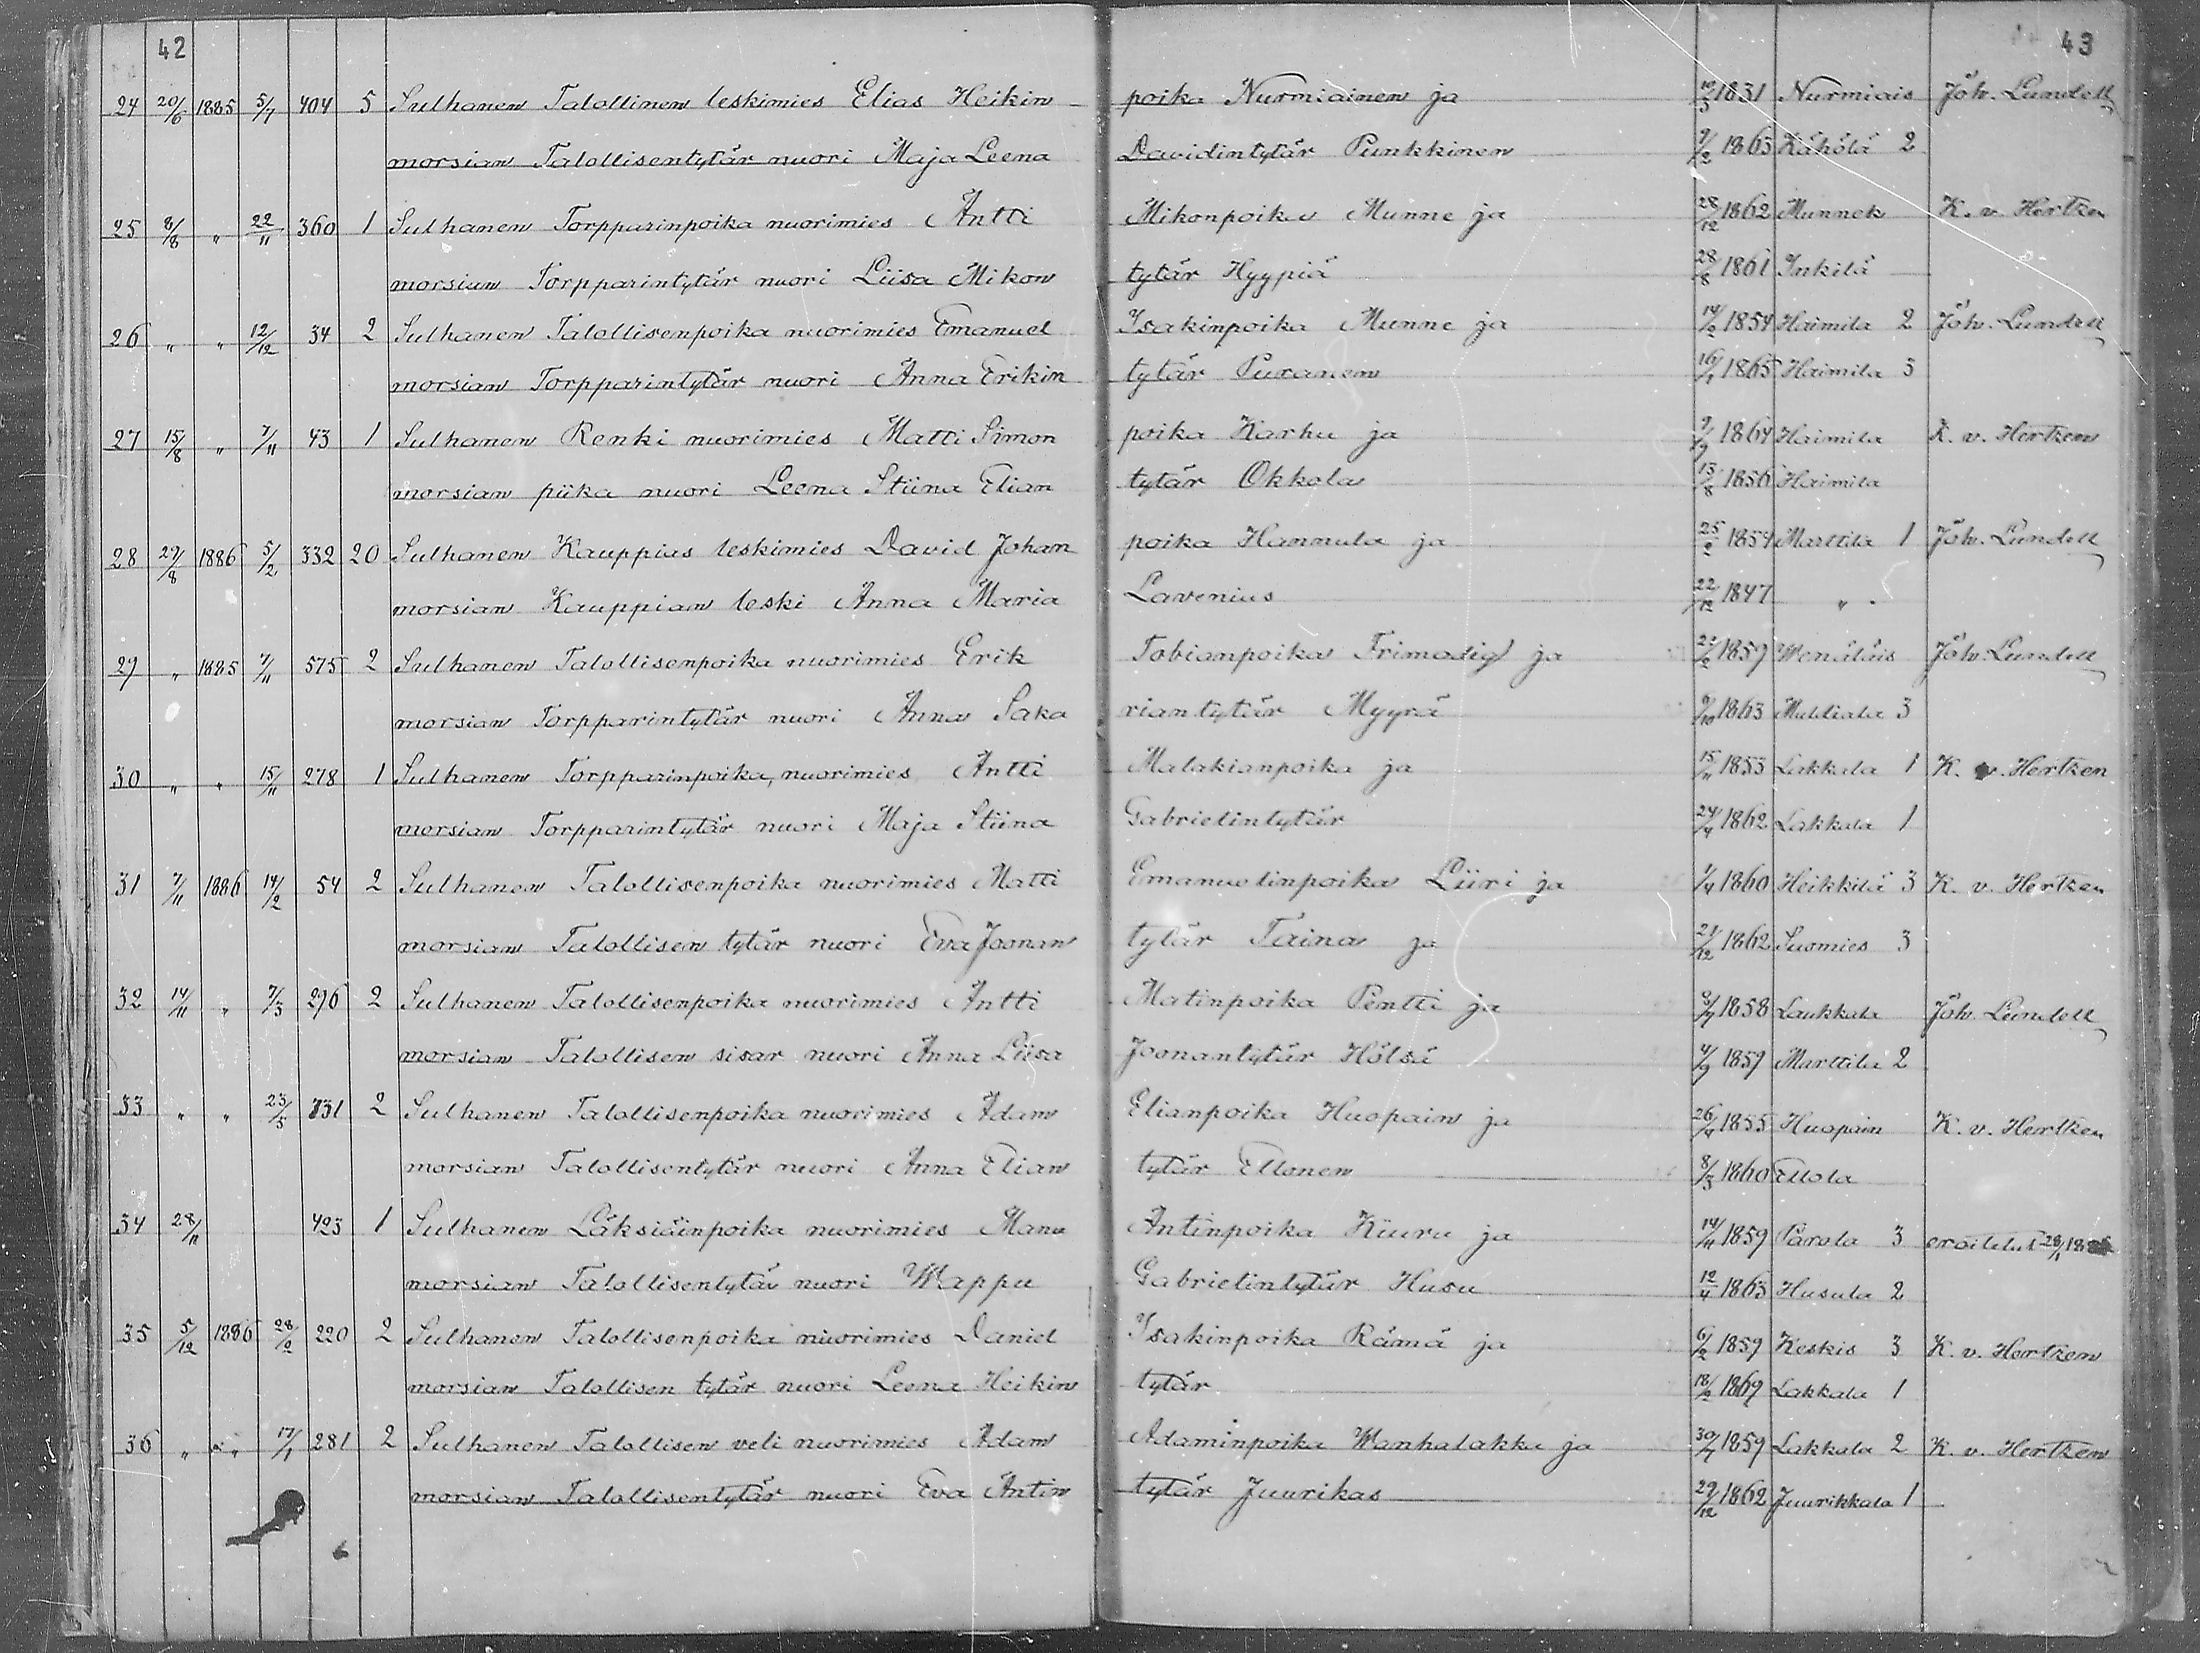 42
43
24 20/6 1885 5/7 404 5 Sulhanen Talollinen leskimies Elias Heikin poika Nurmiainen ja 1831 Nurmiais Joh. Lundell
morsian Talollisentytär nuori Maja Leena Davidintytär Punkkinen 9/2 1863 Kähölä 2
25 8/8 " 22/11 360 1 Sulhanen Torpparinpoika nuorimies Antti Mikonpoika Munne ja 28/12 1862 Munnek K. v. Hertzen
morsian Torpparintytär nuori Liisa Mikon tytär Hyypiä 28/8 1861 Inkilä
26 " " 12/12 34 2 Sulhanen Talollisenpoika nuorimies Emanuel Isakinpoika Munne ja 14/2 1854 Haimila 2 Joh. Lundell
morsian Torpparintytär nuori Anna Erikin tytär Puranen 16/1 1865 Haimila 3
27 15/8 " 7/11 43 1 Sulhanen Renki nuorimies Matti Simon poika Karhu ja 9/9 1864 Haimila K. v. Hertzen
morsian piika nuori Leena Stiina Elian tytär Okkola 13/8 1856 Haimila
28 29/8 1886 5/2 332 20 Sulhanen Kauppias leskimies David Johan poika Hannula ja 25/2 1854 Marttila 1 Joh. Lundell
morsian Kauppian leski Anna Maria Lavenius 22/12 1847 "
29 " 1885 7/11 575 2 Sulhanen Talollisenpoika nuorimies Erik Tobianpoika Frimodig ja 1859 Wenäläis Joh. Lundell
morsian Torpparintytär nuori Anna Saka riantytär Myyrä 9/10 1863 Muldiala 3
30 " " 15/11 278 1 Sulhanen Torpparinpoika, nuorimies Antti Malakianpoika ja 15/11 1853 Lakkala 1 K. v. Hertzen
morsian Torpparintytär nuori Maja Stiina Gabrielintytär 24/4 1862 Lakkala 1
31 7/11 1886 14/2 54 2 Sulhanen Talollisenpoika nuorimies Matti Emanuelinpoika Liiri ja 1/4 1860 Heikkilä 3 K. v. Hertzen
morsian Talollisen tytär nuori Eva Joonan tytär Taina ja 21/12 1862 Suomies 3
32 14/11 " 7/3 296 2 Sulhanen Talollisenpoika nuorimies Antti Matinpoika Pentti ja 1858 Laukkala Joh. Lundell
morsian Talollisen sisar nuori Anna Liisa Joonantytär Hölsä 4/9 1859 Marttila 2
33 " " 23/5 331 2 Sulhanen Talollisenpoika nuorimies Adam Elianpoika Huopain ja 26/4 1855 Huopain K. v. Hertzen
morsian Talollisentytär nuori Anna Elian tytär Ellonen 8/3 1860 Ellola
34 28/11 423 1 Sulhanen Läksiäinpoika nuorimies Manu Antinpoika Kiuru ja 14/11 1859 Parola 3 eroitetut
morsian Talollisentytär nuori Wappu Gabrielintytär Husu 12/4 1863 Husula 2
35 5/12 1886 28/2 220 2 Sulhanen Talollisenpoika nuorimies Daniel Isakinpoika Rämä ja 6/2 1859 Keskis 3 K. v. Hertzen
morsian Talollisen tytär nuori Leena Heikin tytär 18/2 1869 Lakkala 1
36 " " 17/1 281 2 Sulhanen Talollisen veli nuorimies Adam Adaminpoika Wanhalakka ja 1859 Lakkala 2 K. v. Hertzen
morsian Talollisentytär nuori Eva Antin tytär Juurikas 29/12 1862 Juurikkala 1